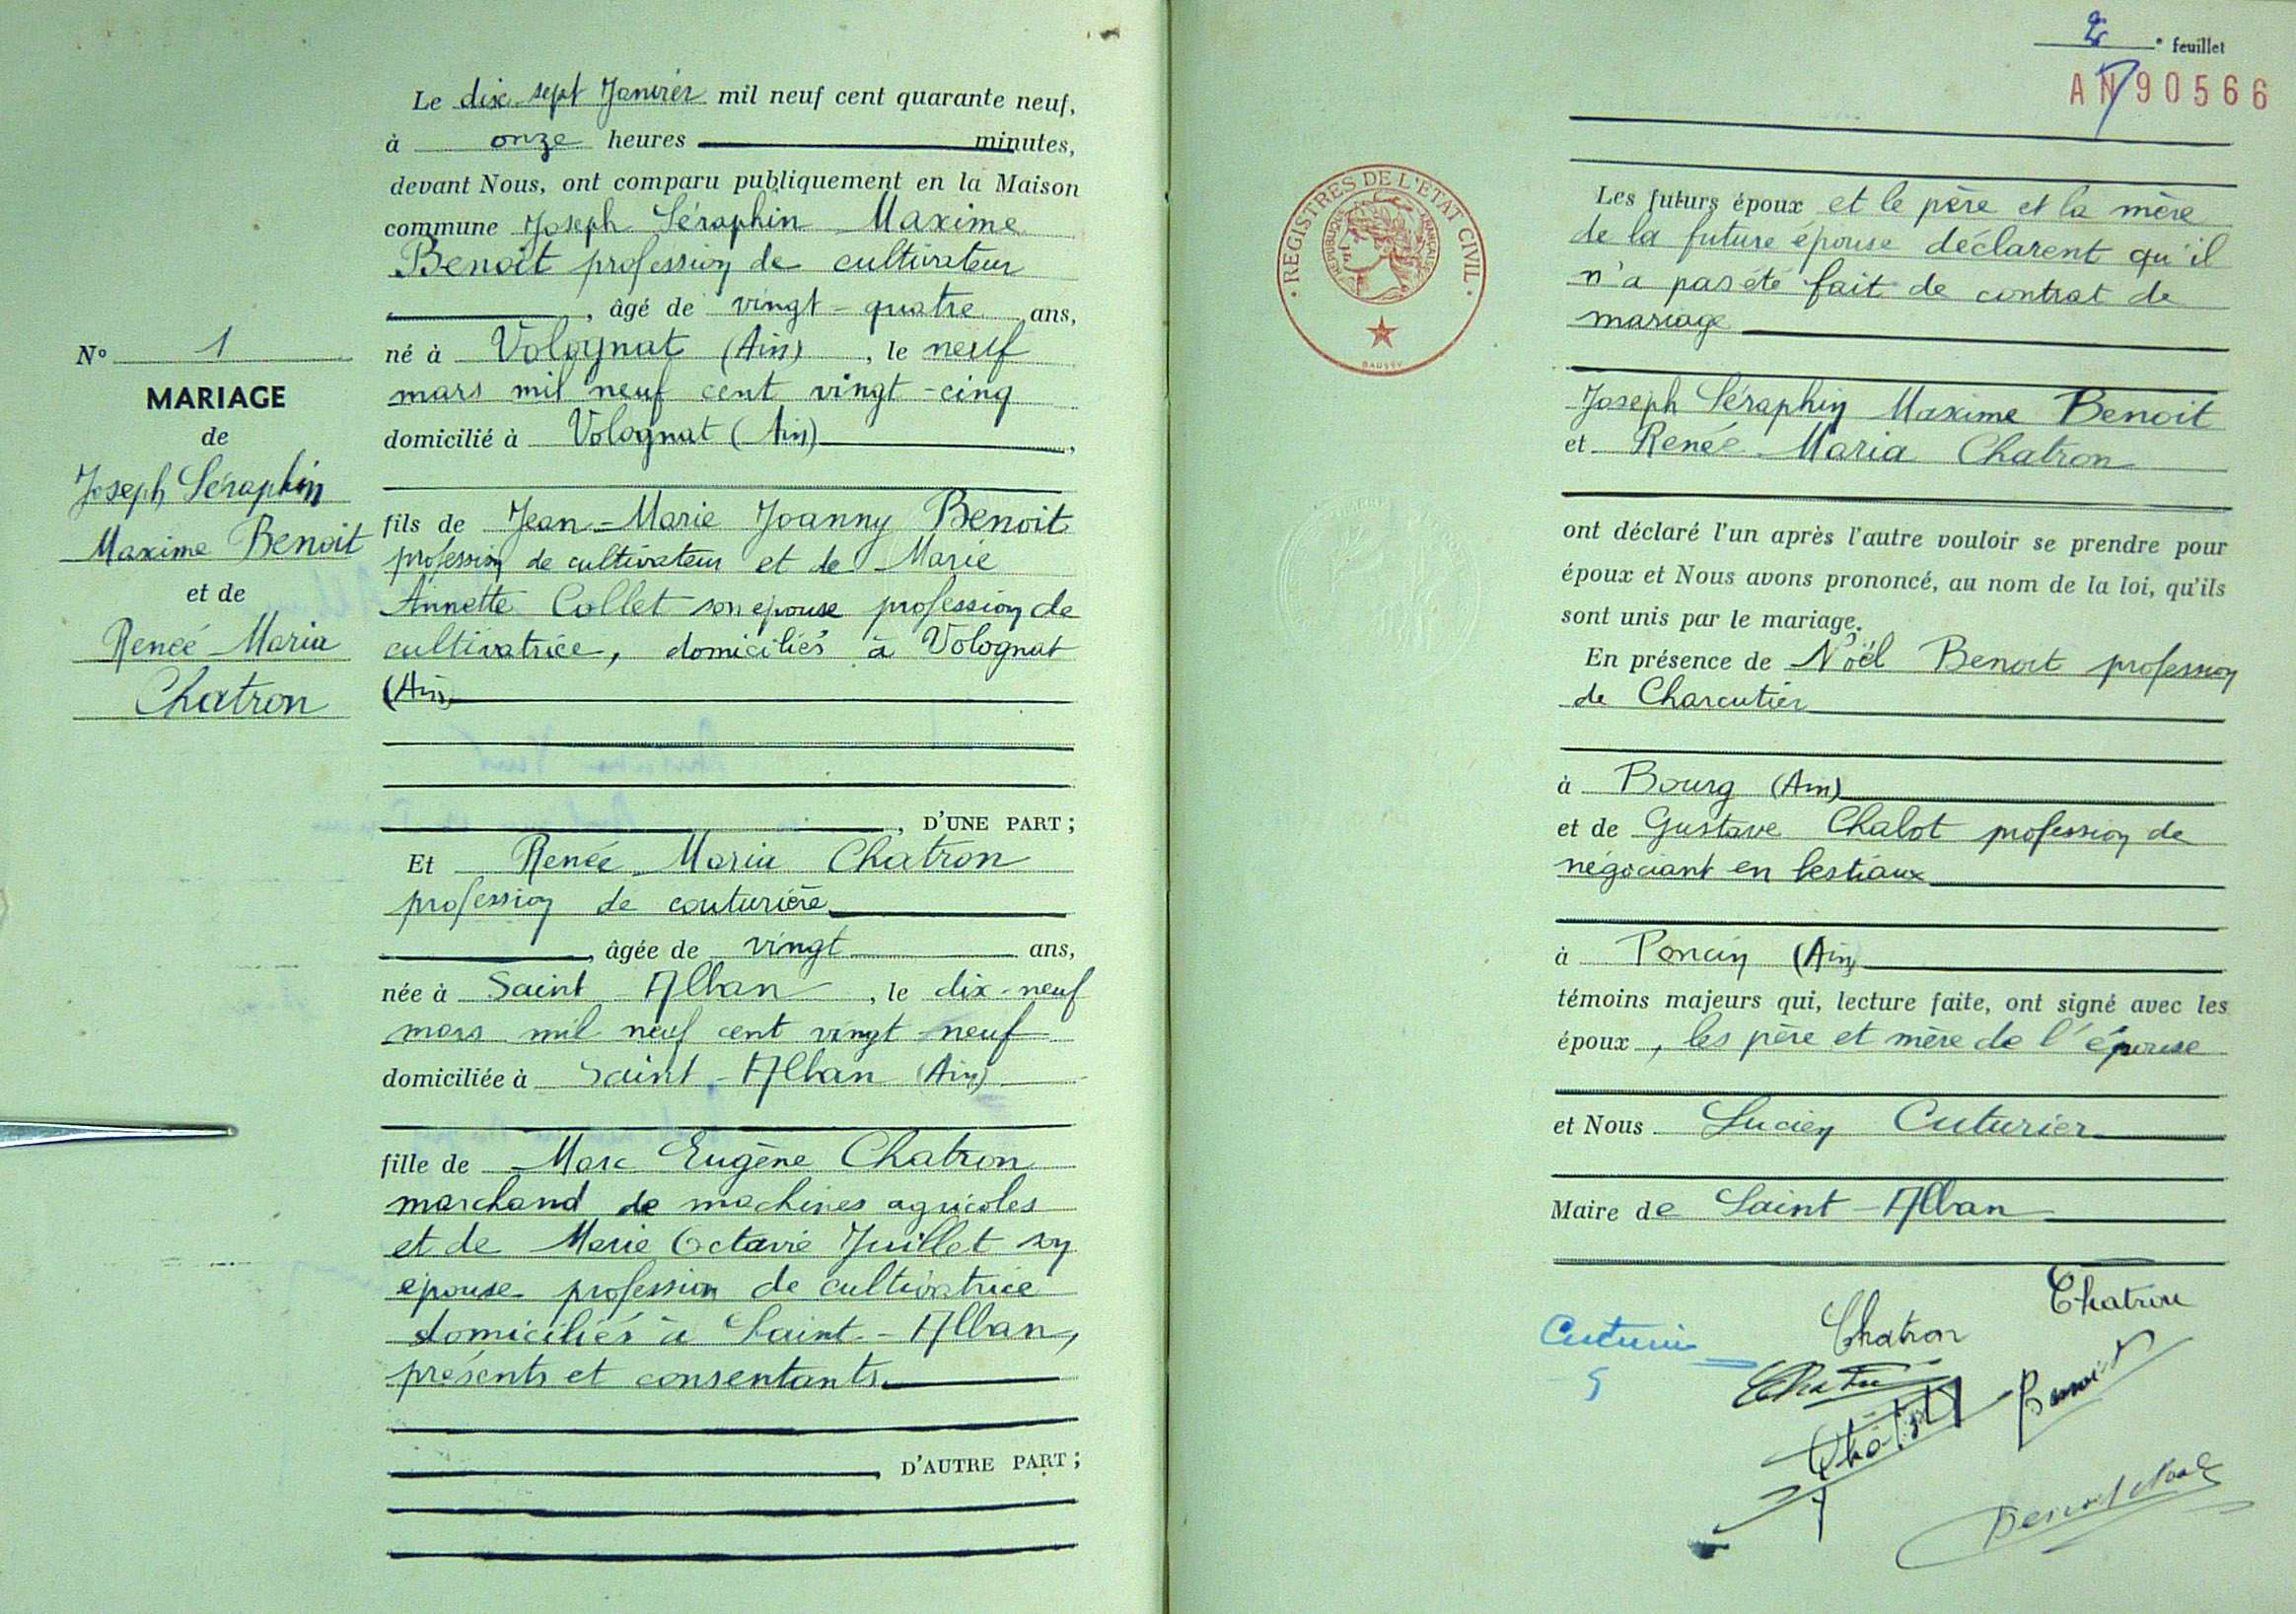 Le dix-sept Janvier mil neuf cent quarante neuf,
à onze heures minutes,
devant Nous, ont comparu publiquement en la Maison
commune Joseph Séraphin Maxime
Benoit profession de cultivateur
, âgé de vingt-quatre ans,
né à Volognat (Ain), le neuf
mars mil neuf cent vingt-cinq
domicilié à Volognat (Ain),
N° 1
MARIAGE
de
Joseph Séraphin
Maxime Benoit
et de
Renée Maria
Chatron
fils de Jean-Marie Joanny Benoit
profession de cultivateur et de Marie
Annette Collet son épouse profession de
cultivatrice, domiciliés à Volognat
(Ain)
, D'UNE PART ;
Et Renée Maria Chatron
profession de couturière
, âgée de vingt ans,
née à Saint Alban, le dix-neuf
mars mil neuf cent vingt-neuf
domiciliée à Saint-Alban (Ain)
fille de Marc Eugène Chatron
marchand de machines agricoles
et de Marie Octavie Juillet son
épouse profession de cultivatrice
domiciliés à Saint-Alban,
présents et consentants.
, D'AUTRE PART ;
2e feuillet
AN 90566
REGISTRES DE L'ÉTAT CIVIL
RÉPUBLIQUE FRANÇAISE
Les futurs époux et le père et la mère
de la future épouse déclarent qu'il
n'a pas été fait de contrat de
mariage
Joseph Séraphin Maxime Benoit
et Renée Maria Chatron
ont déclaré l'un après l'autre vouloir se prendre pour
époux et Nous avons prononcé, au nom de la loi, qu'ils
sont unis par le mariage.
En présence de Noël Benoit profession
de Charcutier
à Bourg (Ain)
et de Gustave Chalot profession de
négociant en bestiaux
à Poncin (Ain)
témoins majeurs qui, lecture faite, ont signé avec les
époux, les père et mère de l'épouse
et Nous Lucien Cuturier
Maire de Saint-Alban
Chatron
Cuturier
Chatron
Benoit
Benoit Noël